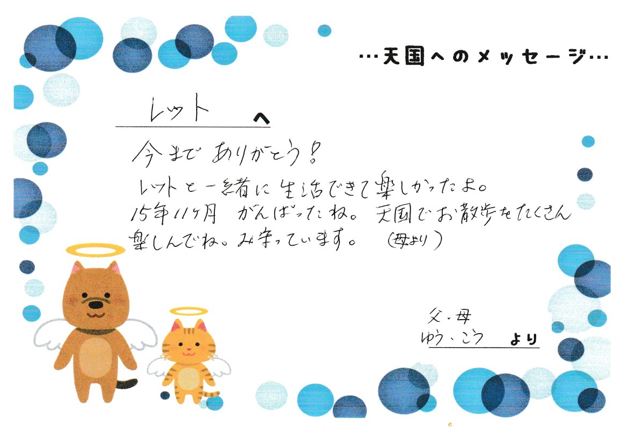 …天国へのメッセージ…
レット へ
今までありがとう!
レットと一緒に生活できて楽しかったよ。
15年11ヶ月 がんばったね。天国でお散歩をたくさん
楽しんでね。み守っています。 (母より)
父・母
ゆう・こう より